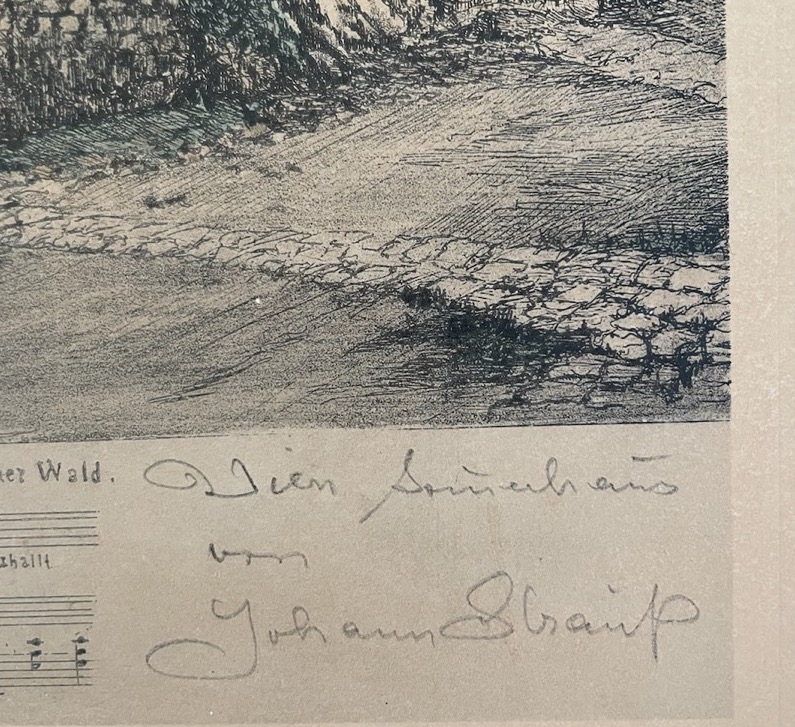 er Wald.
Wien Som̄erhaus
von
Johann Strauß